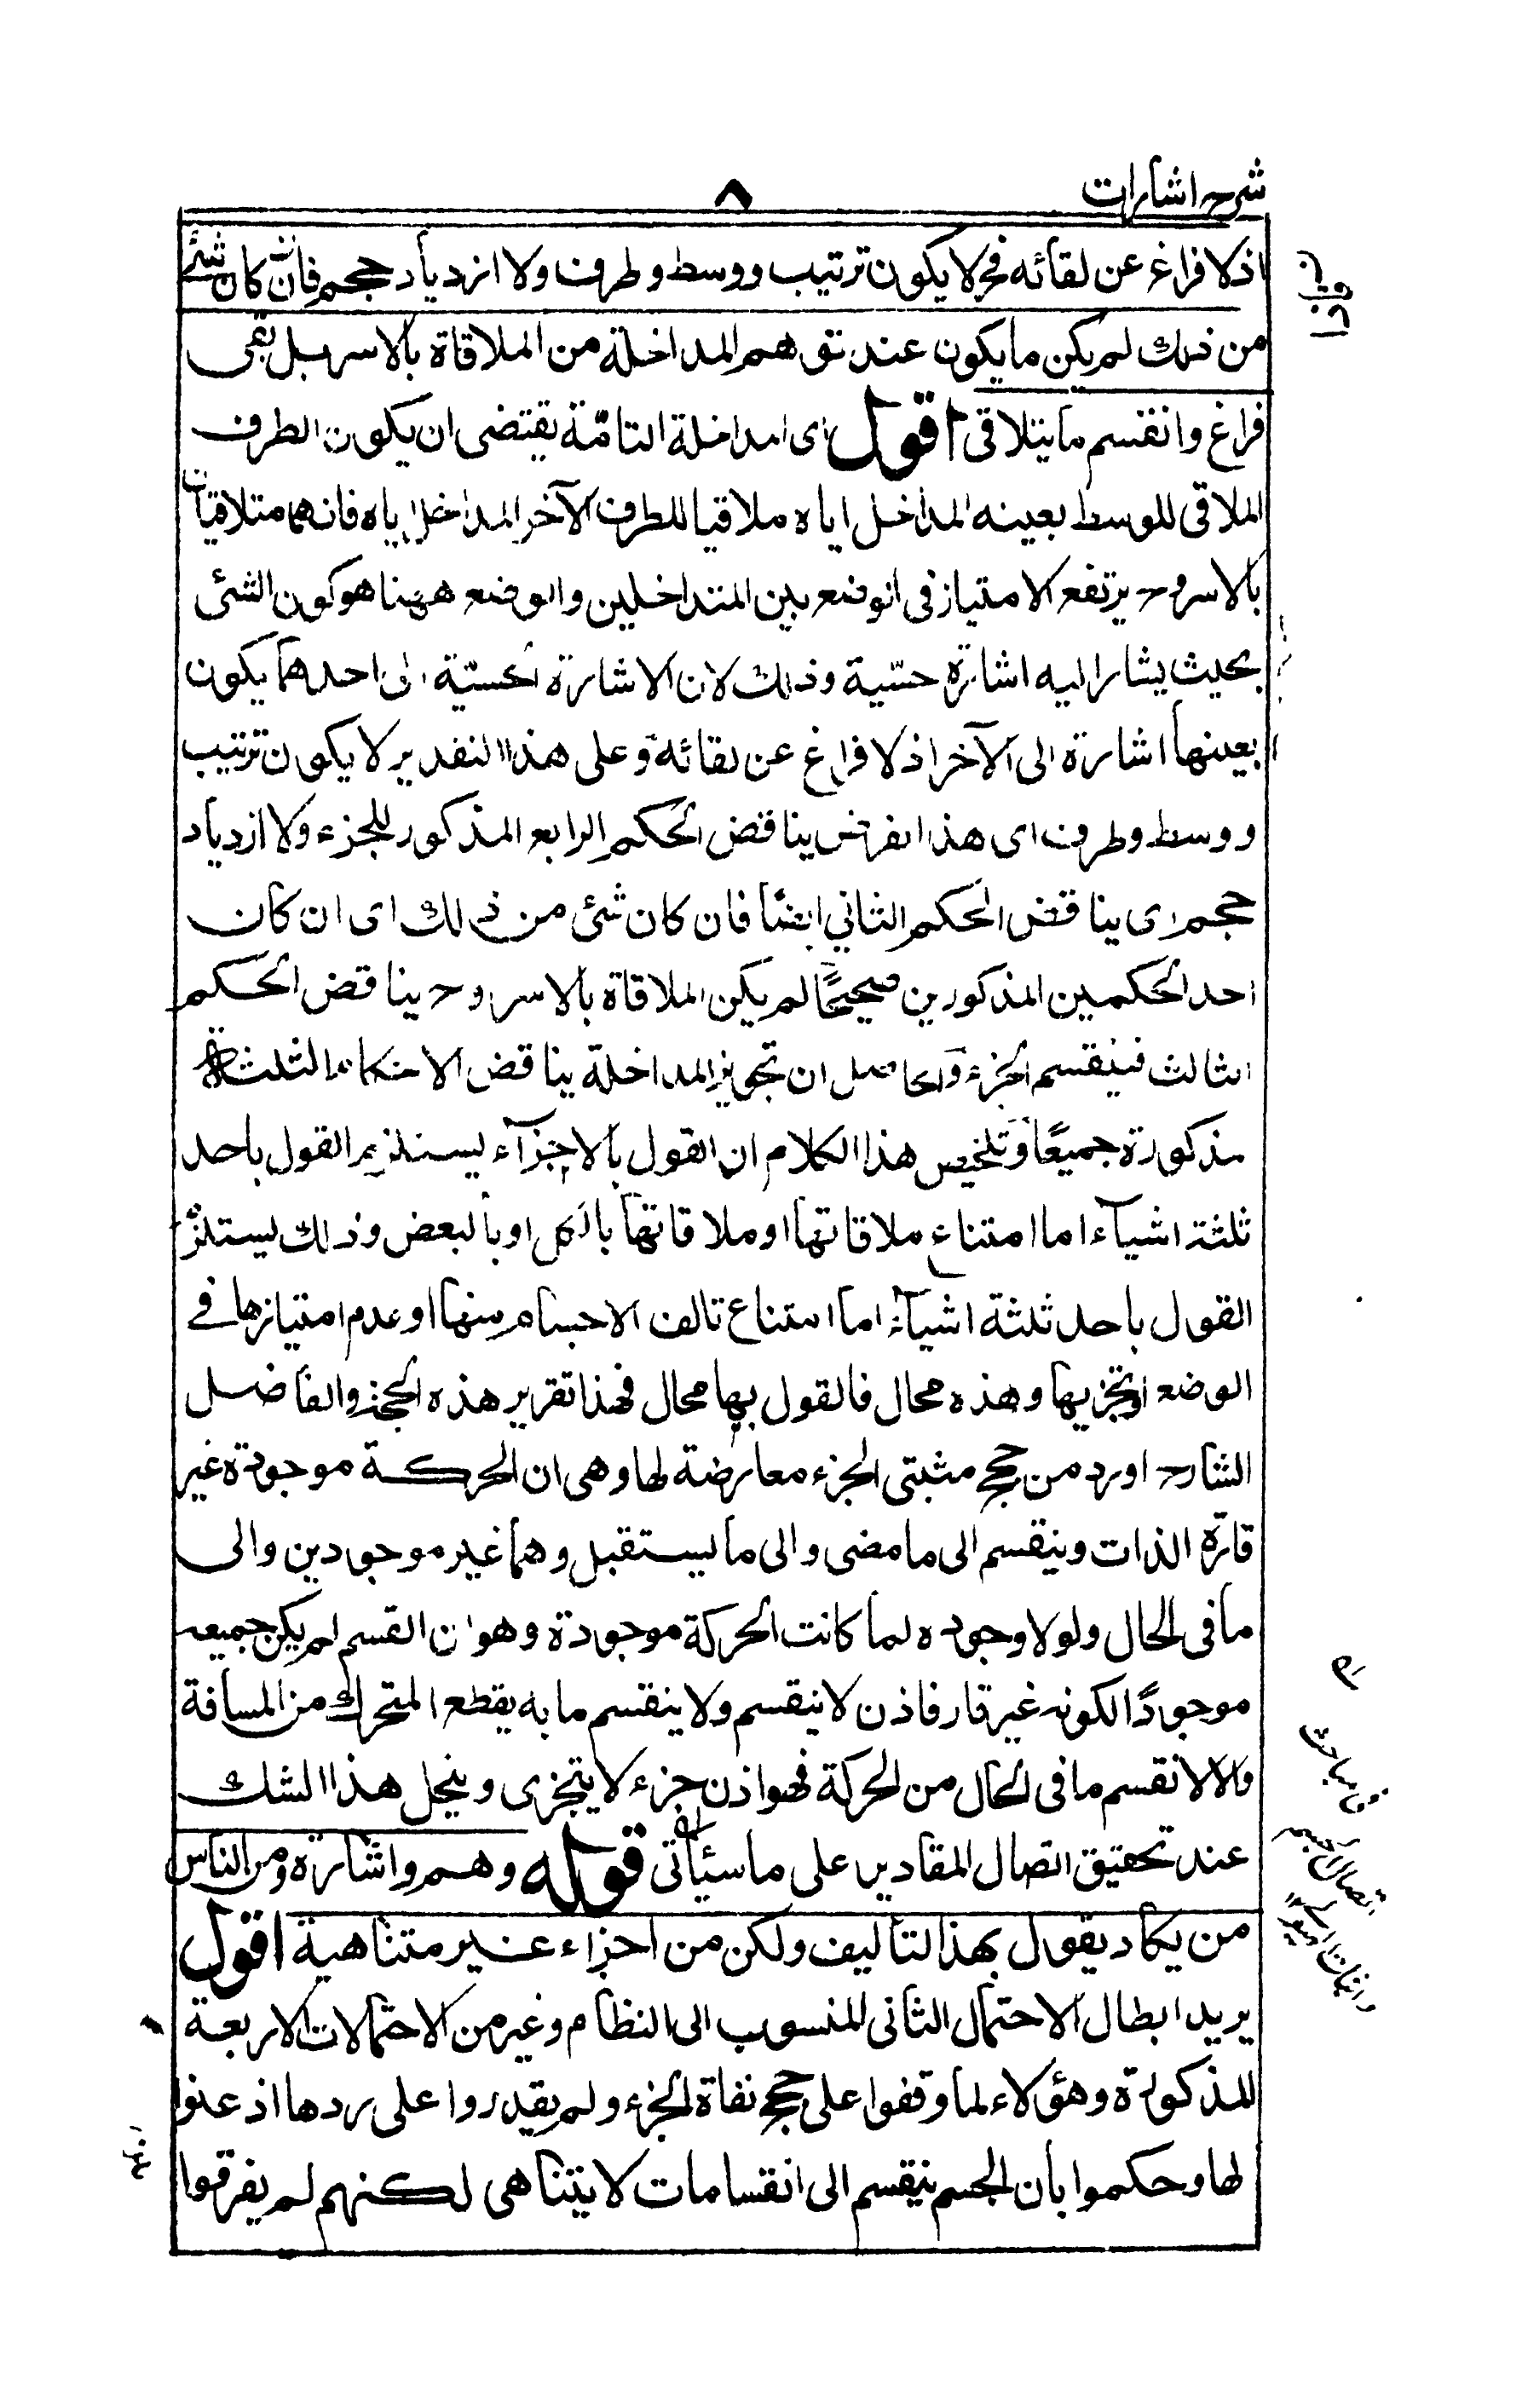 شرح اشارات
٨
اذ لا فراغ عن لقائه فح لا يكون ترتيب ووسط وطرف ولا ازدياد حجم فان كان شئ
من ذلك لم يكن ما يكون عند توهم المداخلة من الملاقاة بالاسر بل بقى
فراغ وانقسم ما يتلاقى اقول اى المداخلة التامّة يقتضى ان يكون الطرف
الملاقى للوسط بعينه المداخل اياه ملاقيا للطرف الآخر المداخل اياه فانهما متلاقيان
بالاسر وح يرتفع الامتياز فى الوضع بين المتداخلين والوضع ههنا هو كون الشئ
بحيث يشار اليه اشارة حسّية وذلك لان الاشارة الحسيّة الى احدهما يكون
بعينها اشارة الى الآخر اذ لا فراغ عن لقائه وعلى هذا التقدير لا يكون ترتيب
ووسط وطرف اى هذا الفرض يناقض الحكم الرابع المذكور للجزء ولا ازدياد
حجم اى يناقض الحكم الثانى ايضًا فان كان شئ من ذلك اى ان كان
احد الحكمين المذكورين صحيحًا لم يكن الملاقاة بالاسر وح يناقض الحكم
الثالث فينقسم الجزء والحاصل ان تجويز المداخلة يناقض الاحكام الثلثة
مذكورة جميعًا وتلخيص هذا الكلام ان القول بالاجزآء يستلزم القول باحد
ثلثة اشيآء اما امتناع ملاقاتها او ملاقاتها بالكل او بالبعض وذلك يستلزم
القول باحد ثلثة اشيآء اما امتناع تالف الاجسام منها او عدم امتيازها فے
الوضع او تجزيها وهذه محال فالقول بها محال فهذا تقرير هذه الحجة والفاضل
الشارح اورد من حجج مثبتى الجزء معارضة لها وهى ان الحركة موجودة غير
قارّة الذات وينقسم الى ما مضى والى ما يستقبل وهما غير موجودين والى
ما فى الحال ولولا وجوده لما كانت الحركة موجودة وهو ان القسم لم يكن جميعه
موجودًا لكونه غير قار فاذن لا ينقسم ولا ينقسم ما به يقطع المتحرك من المسافة
والا لانقسم ما فى الحال من الحركة فهو اذن جزء لا يتجزى وينحل هذا الشك
عند تحقيق اتصال المقادير على ما سيأتى قوله وهم واشارة ومن الناس
من يكاد يقول بهذا التأليف ولكن من اجزاء غير متناهية اقول
يريد ابطال الاحتمال الثانى المنسوب الى النظام وغيره من الاحتمالات الاربعة
المذكورة وهؤلاء لما وقفوا على حجج نفاة الجزء ولم يقدروا على ردها اذعنوا
لها وحكموا بأن الجسم ينقسم الى انقسامات لا يتناهى لكنهم لم يفرقوا